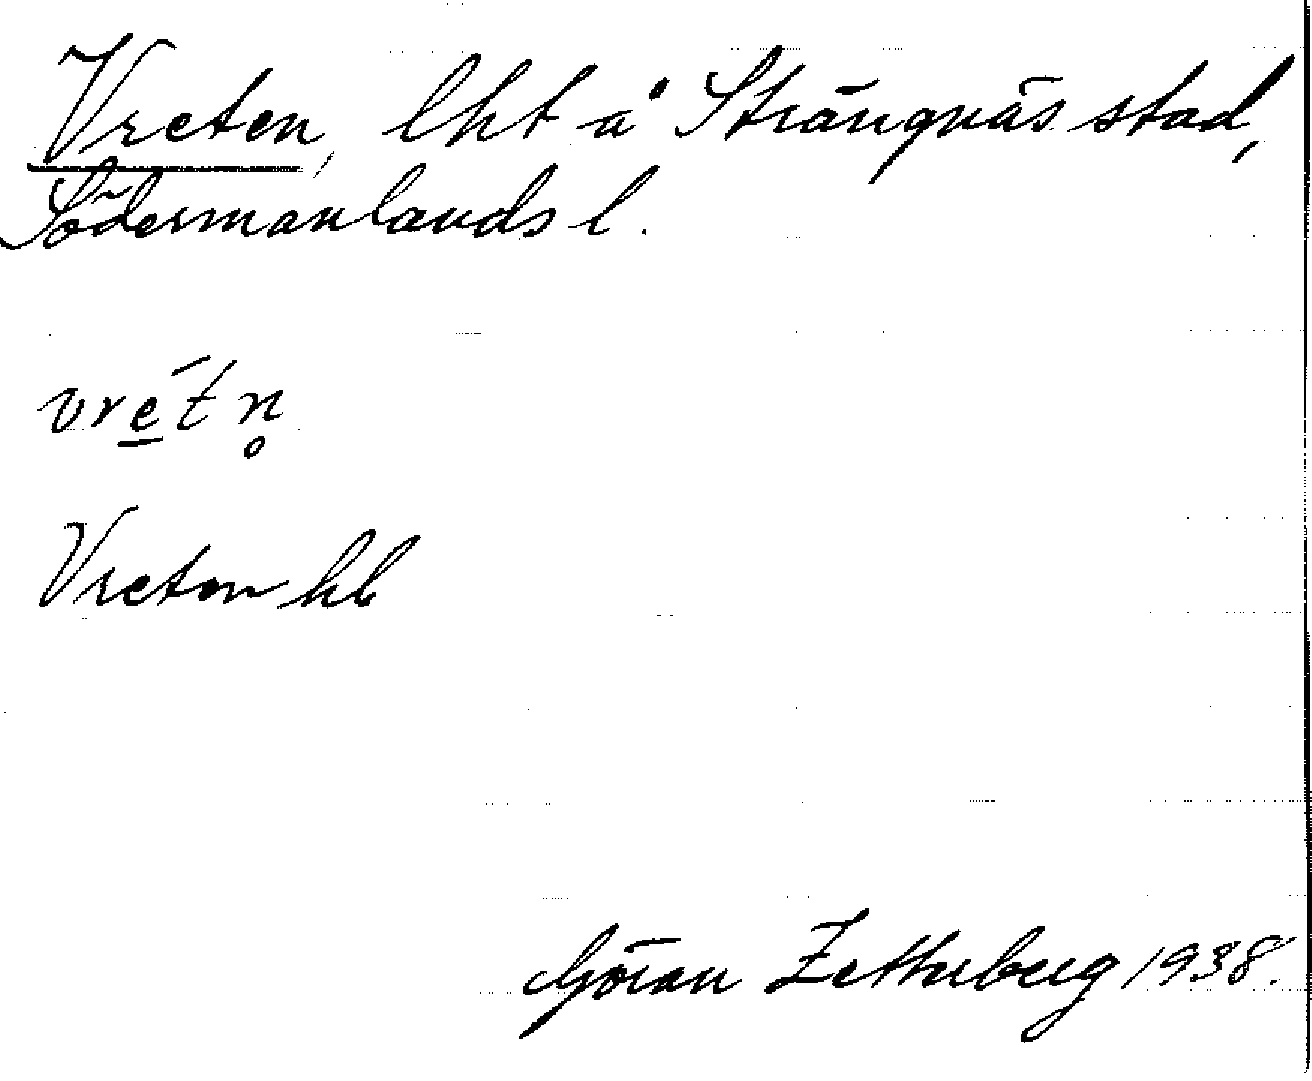 Vreten, lht å Strängnäs stad,
Södermanlands l.
vré̲tn̥
Vreten hb
Göran Zetterberg 1938.